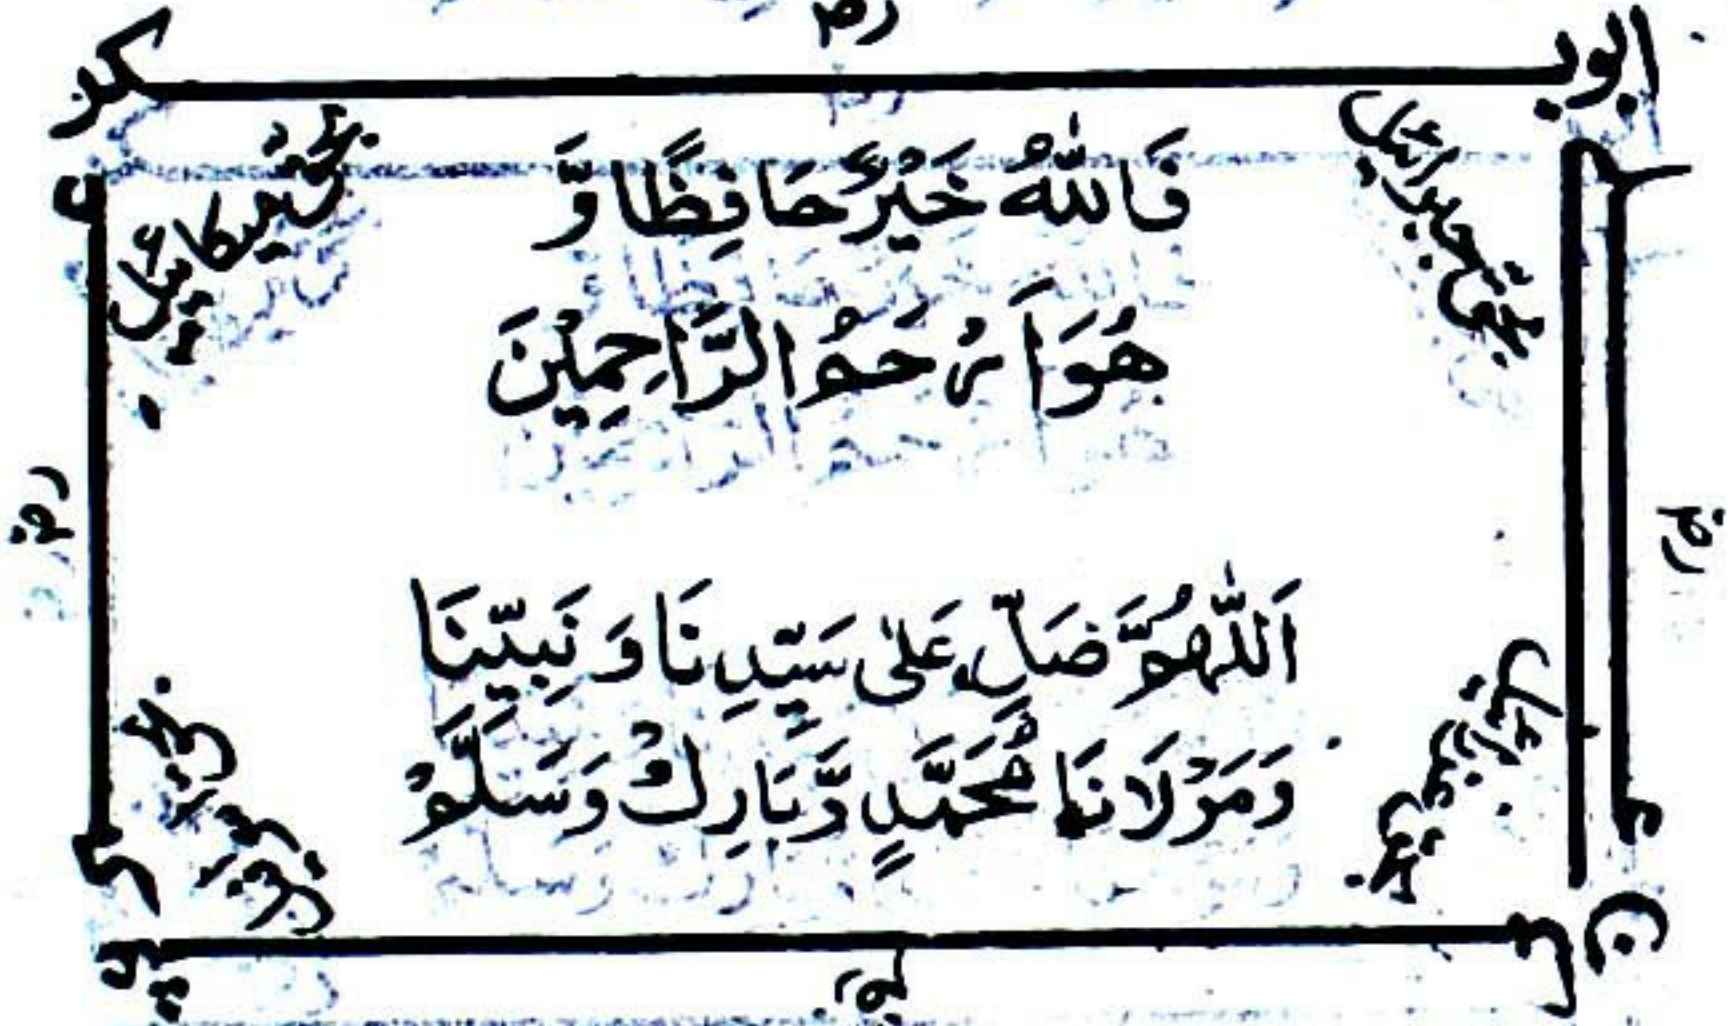 ابوبکر
رض
بحق جبرائیل
بحق میکائیل
فَاللّٰهُ خَيْرٌ حَافِظًا وَّ
هُوَ اَرْحَمُ الرَّاحِمِيْنَ
رض
رض
اَللّٰهُمَّ صَلِّ عَلٰى سَيِّدِنَا وَ نَبِيِّنَا
وَمَوْلَانَا مُحَمَّدٍ وَّبَارِكْ وَسَلِّمْ